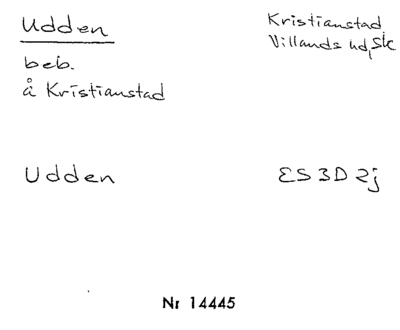 Udden
Kristianstad
Villands hd, Sk
beb.
å Kristianstad
Udden
ES 3D 2j
Nr 14445